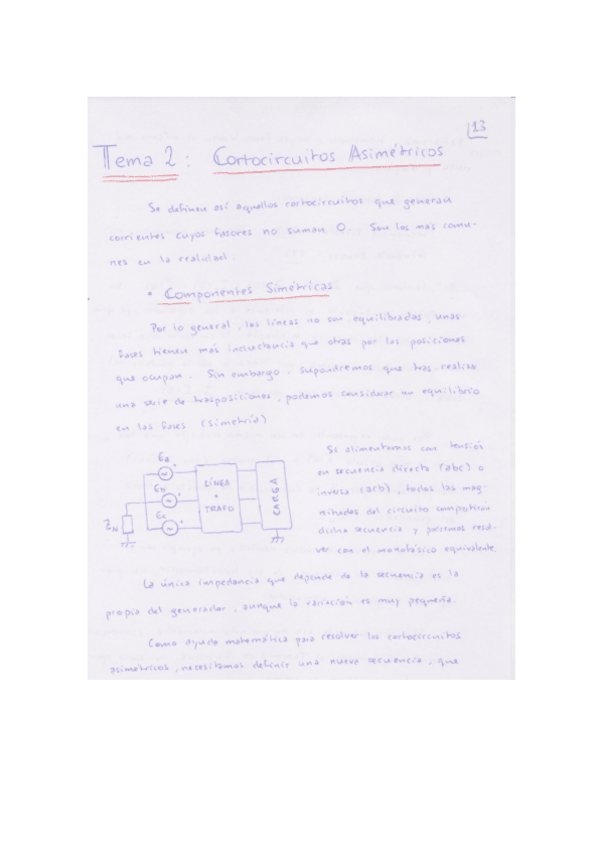 13
Tema 2: Cortocircuitos Asimétricos
Se definen así aquellos cortocircuitos que generan
corrientes cuyos fasores no suman 0. Son los más comu-
nes en la realidad.
• Componentes Simétricas
Por lo general, las líneas no son equilibradas, unas
fases tienen más inductancia que otras por las posiciones
que ocupan. Sin embargo, supondremos que tras realizar
una serie de trasposiciones, podemos considerar un equilibrio
en las fases (simetría)
Ea
Eb
Ec
ZN
LÍNEA
+
TRAFO
CARGA
Si alimentamos con tensión
en secuencia directa (abc) o
inversa (acb), todas las mag-
nitudes del circuito compartirán
dicha secuencia y podremos resol-
ver con el monofásico equivalente.
La única impedancia que depende de la secuencia es la
propia del generador, aunque la variación es muy pequeña.
Como ayuda matemática para resolver los cortocircuitos
asimétricos, necesitamos definir una nueva secuencia, que